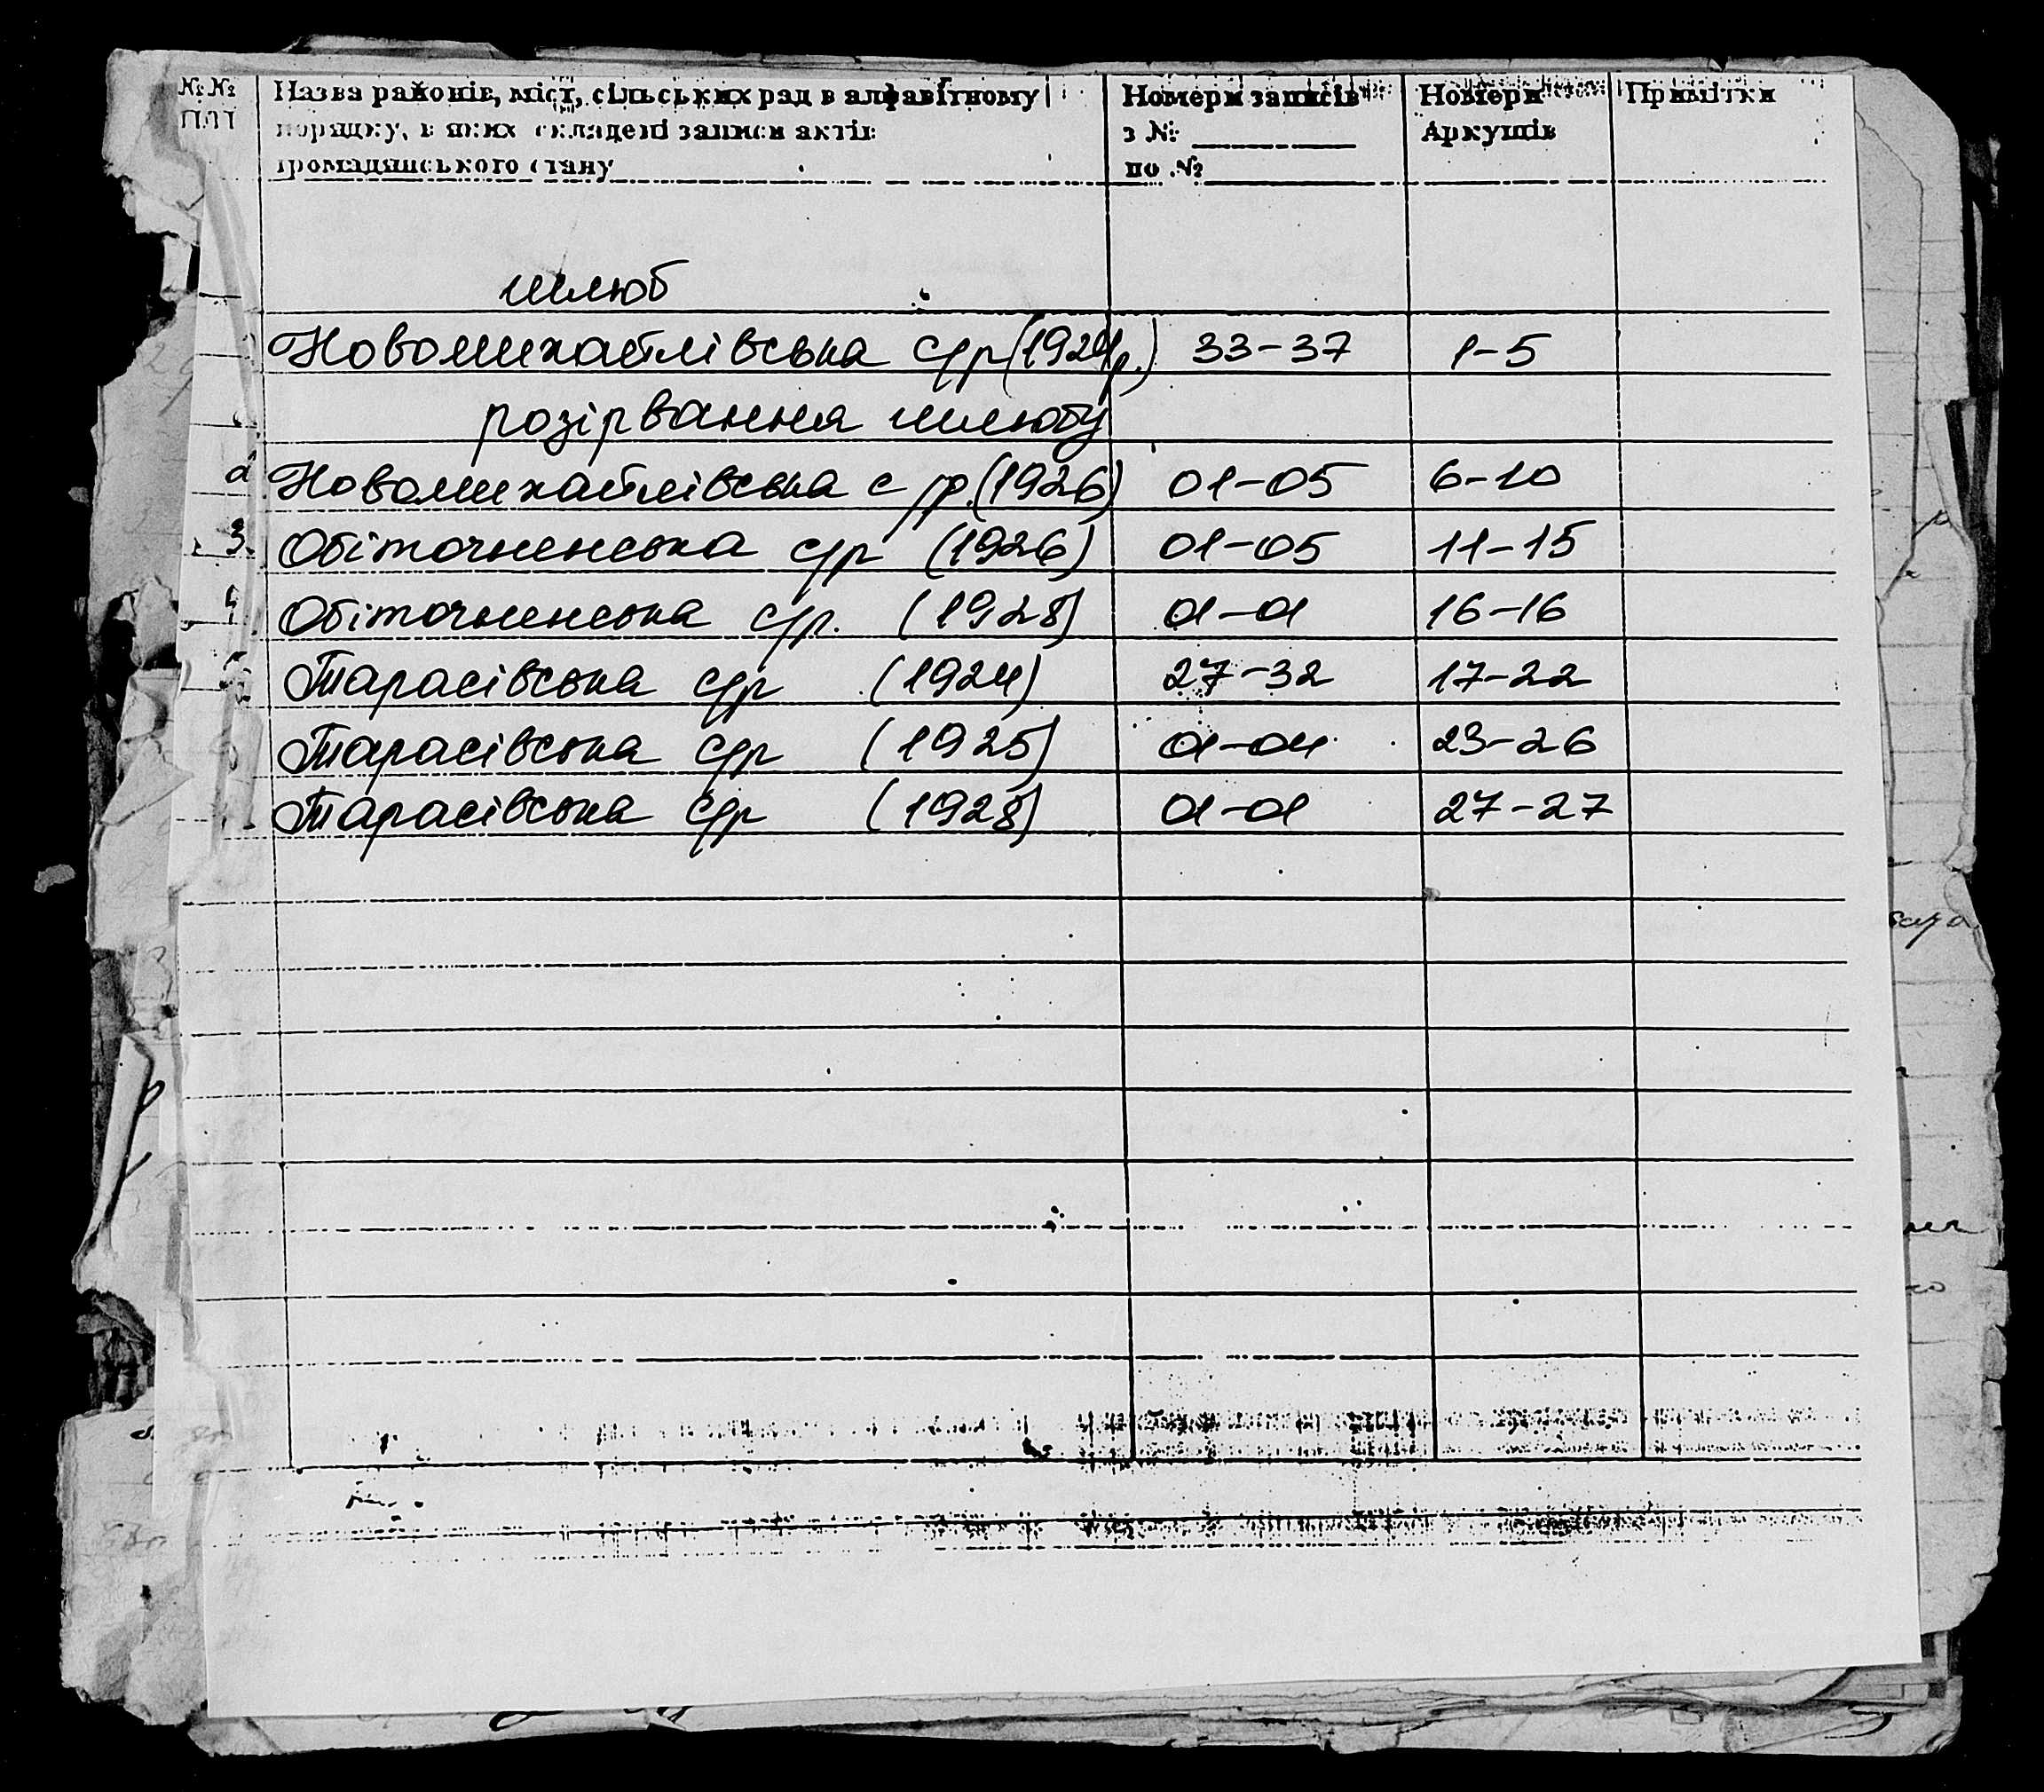 №№ Назва районів, міст, сільських рад в алфавітному Номери записів Номери Примітки
п/п порядку, в яких складені записи актів з № Аркушів
громадянського стану по №
шлюб
Новомихайлівська с/р (1924р.) 33-37 1-5
розірвання шлюбу
2 Новомихайлівська с/р. (1926) 01-05 6-10
3. Обіточненська с/р (1926) 01-05 11-15
4. Обіточненська с/р. (1928) 01-01 16-16
5. Тарасівська с/р (1924) 27-32 17-22
Тарасівська с/р (1925) 01-04 23-26
Тарасівська с/р (1928) 01-01 27-27